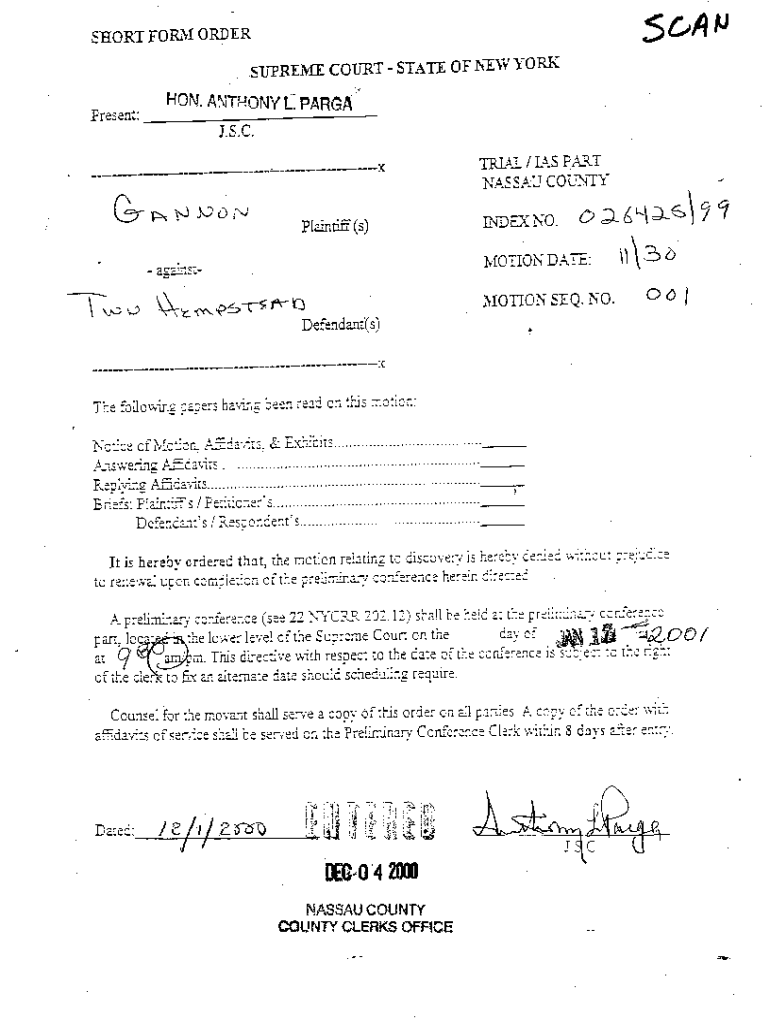 SHORT FORM ORDER
SCAN
SUPREME COURT - STATE OF NEW YORK
Present: HON. ANTHONY L. PARGA
J.S.C.
x
TRIAL / IAS PART
NASSAU COUNTY
GANNON
Plaintiff (s)
INDEX NO. 026425/99
- against-
MOTION DATE: 11/30
TWO HEMPSTEAD
MOTION SEQ. NO. 001
Defendant(s)
x
The following papers having been read on this motion:
Notice of Motion, Affidavits, & Exhibits
Answering Affidavits
Replying Affidavits
Briefs: Plaintiff's / Petitioner's
Defendant's / Respondent's
It is hereby ordered that, the motion relating to discovery is hereby denied without prejudice
to renewal upon completion of the preliminary conference herein directed
A preliminary conference (see 22 NYCRR 202.12) shall be held at the preliminary conference
part, located in the lower level of the Supreme Court on the day of JAN 2001
at 9 am/pm. This directive with respect to the date of the conference is subject to the right
of the clerk to fix an alternate date should scheduling require.
Counsel for the movant shall serve a copy of this order on all parties. A copy of the order with
affidavits of service shall be served on the Preliminary Conference Clerk within 8 days after entry.
Dated: 12/1/2000
ENTERED
Anthony L Parga
J S C
DEC 04 2000
NASSAU COUNTY
COUNTY CLERKS OFFICE